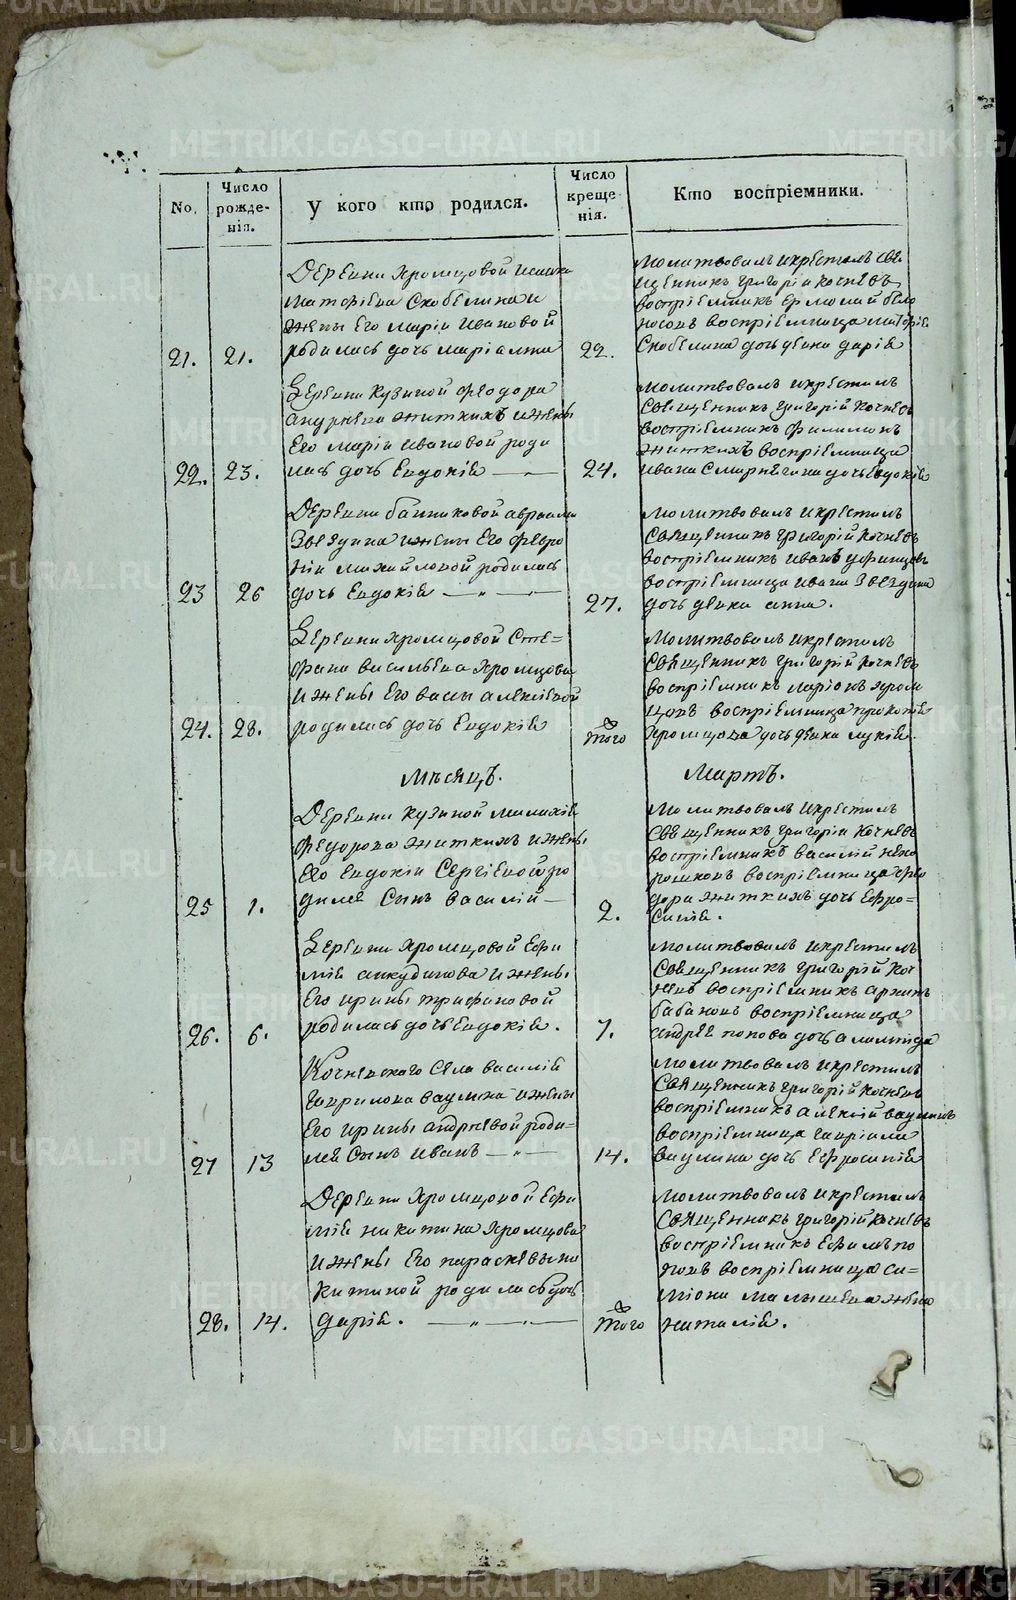 No.
Число рожде-нія.
У кого кто родился.
Число креще нія.
Кто воспріемники.
Деревни Хромцовой
Матѳѣева Скобелина и
жены Его Маріи Ивановой
21. 21. родилась дочь Маріамна 22.
Молитвовалъ икрестилъ Свя
щенникъ григорій Кочневъ
воспріемникъ Ермолай бѣло
носовъ воспріемница
Скобелина дочь девка дарія
Деревни Кузиной Феодора
андреева Житкихъ ижены
Его Маріи Ивановой роди
22. 23. лась дочь Евдокія 24.
Молитвовалъ икрестилъ
Священникъ григорій Кочневъ
воспріемникъ филимонъ
Житкихъ воспріемница
Ивана дочь Евдокія
Деревни банниковой авраама
Звездина ижены Его февро
ніи михайловой родилась
23 26 дочь Евдокія 27.
Молитвовалъ икрестилъ
Священникъ григорій Кочневъ
воспріемникъ Иванъ
воспріемница Ивана Звездина
дочь девка анна.
Деревни Хромцовой Сте=
фана васильева Хромцова
ижены Его васы алексіевой
24. 28. родилась дочь Евдокія того
Молитвовалъ икрестилъ
Священникъ григорій Кочневъ
воспріемникъ ларіонъ хром
цовъ воспріемница прокопія
Хромцова дочь девка лукія.
Мѣсяцъ. Мартъ.
Деревни Кузиной Малахія
Федорова Житкихъ ижены
Его Евдокіи Сергіевой ро
25 1. дился Сынъ василій 2.
Молитвовалъ икрестилъ
Священникъ григорій Кочневъ
воспріемникъ василій
воспріемница
дора Житкихъ дочь Ефро=
синія.
Деревни Хромцовой Ефи
мія анкудинова ижены
Его ирины трифановой
26. 6. родилась дочь Евдокія. 7.
Молитвовалъ икрестилъ
Священникъ григорій Коч
невъ воспріемникъ
бабановъ воспріемница
андрея попова дочь
Кочневскаго Села василія
гаврилова ваулина ижены
Его ирины андреевой роди=
27 13 лся Сынъ Иванъ 14.
Молитвовалъ икрестилъ
Священникъ григорій Кочневъ
воспріемникъ алексій ваулинъ
воспріемница гавріила
ваулина дочь Ефросинія
Деревни Хромцовой Ефи
мія никитина Хромцова
ижены Его параскевы ни
китиной родилась дочь
28. 14. дарія. того
Молитвовалъ икрестилъ
Священникъ григорій Кочневъ
воспріемникъ Ефимъ по
повъ воспріемница Си=
міона Малышева жена
наталія.
METRIKI.GASO-URAL.RU